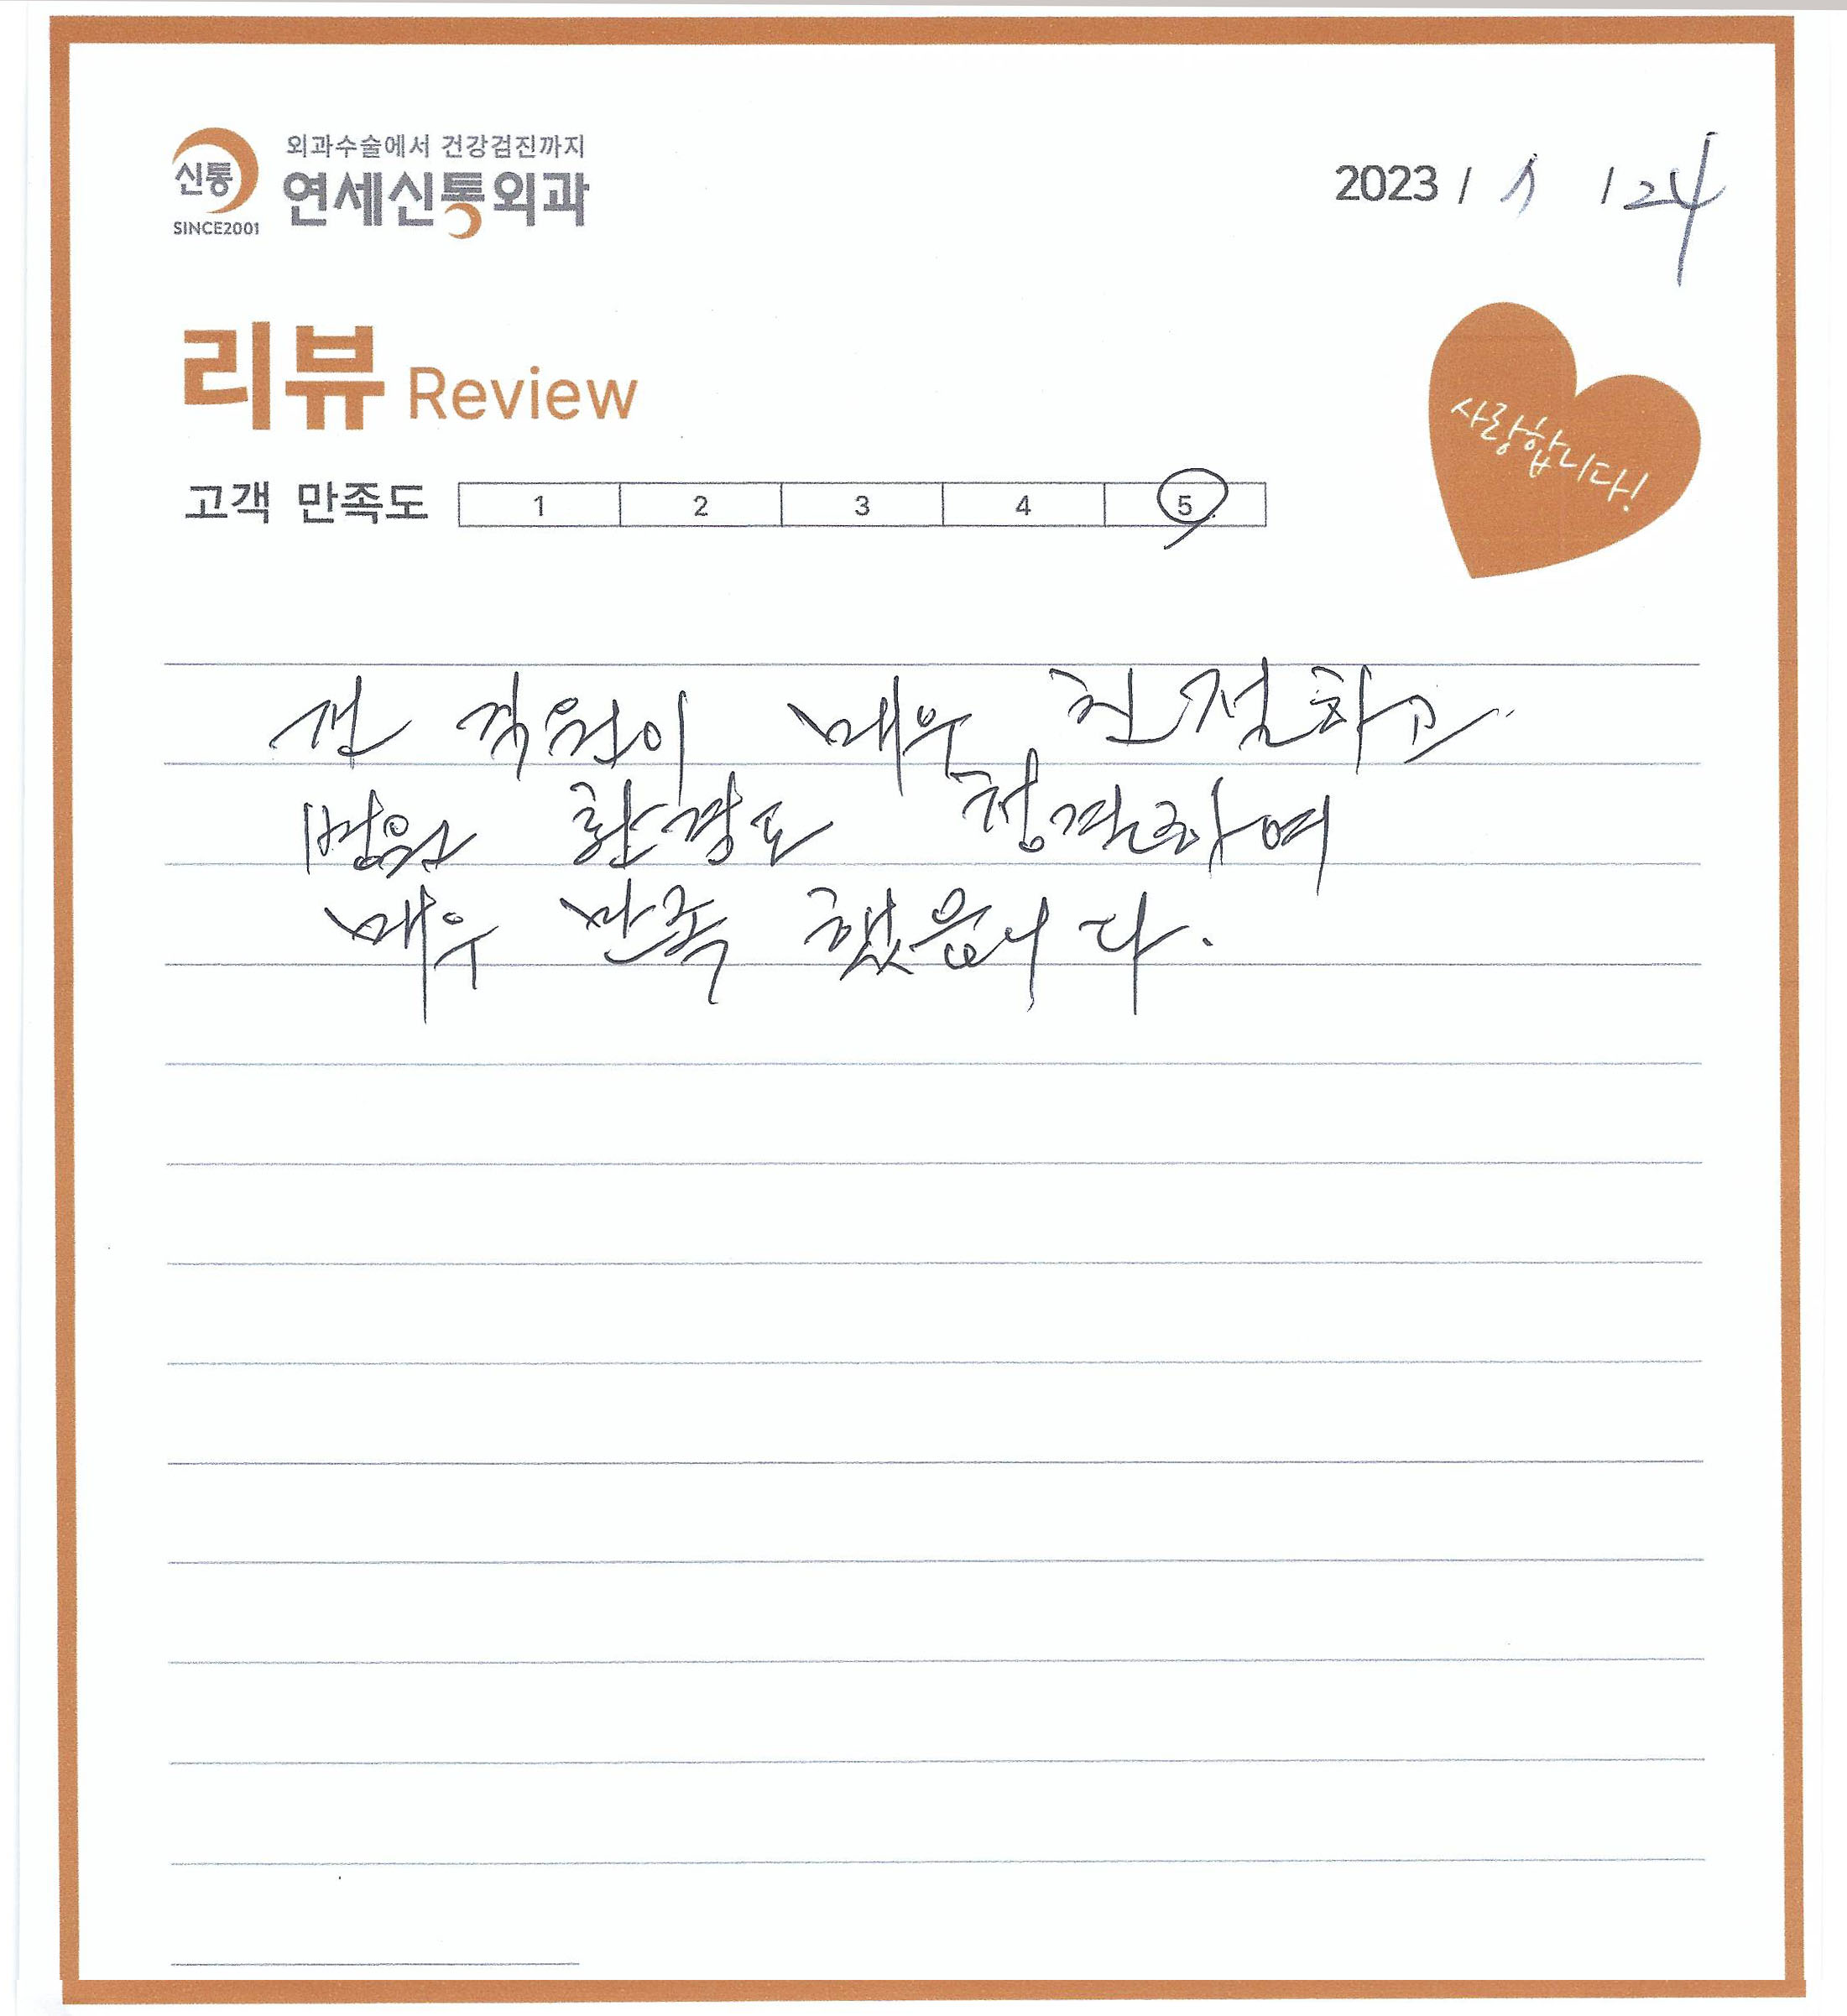 외과수술에서 건강검진까지
신통
연세신통외과
SINCE2001
2023 / 1 / 24
리뷰 Review
사랑합니다!
고객 만족도 1 2 3 4 5
전 직원이 매우 친절하고
병원 환경도 청결하여
매우 만족 했읍니다.